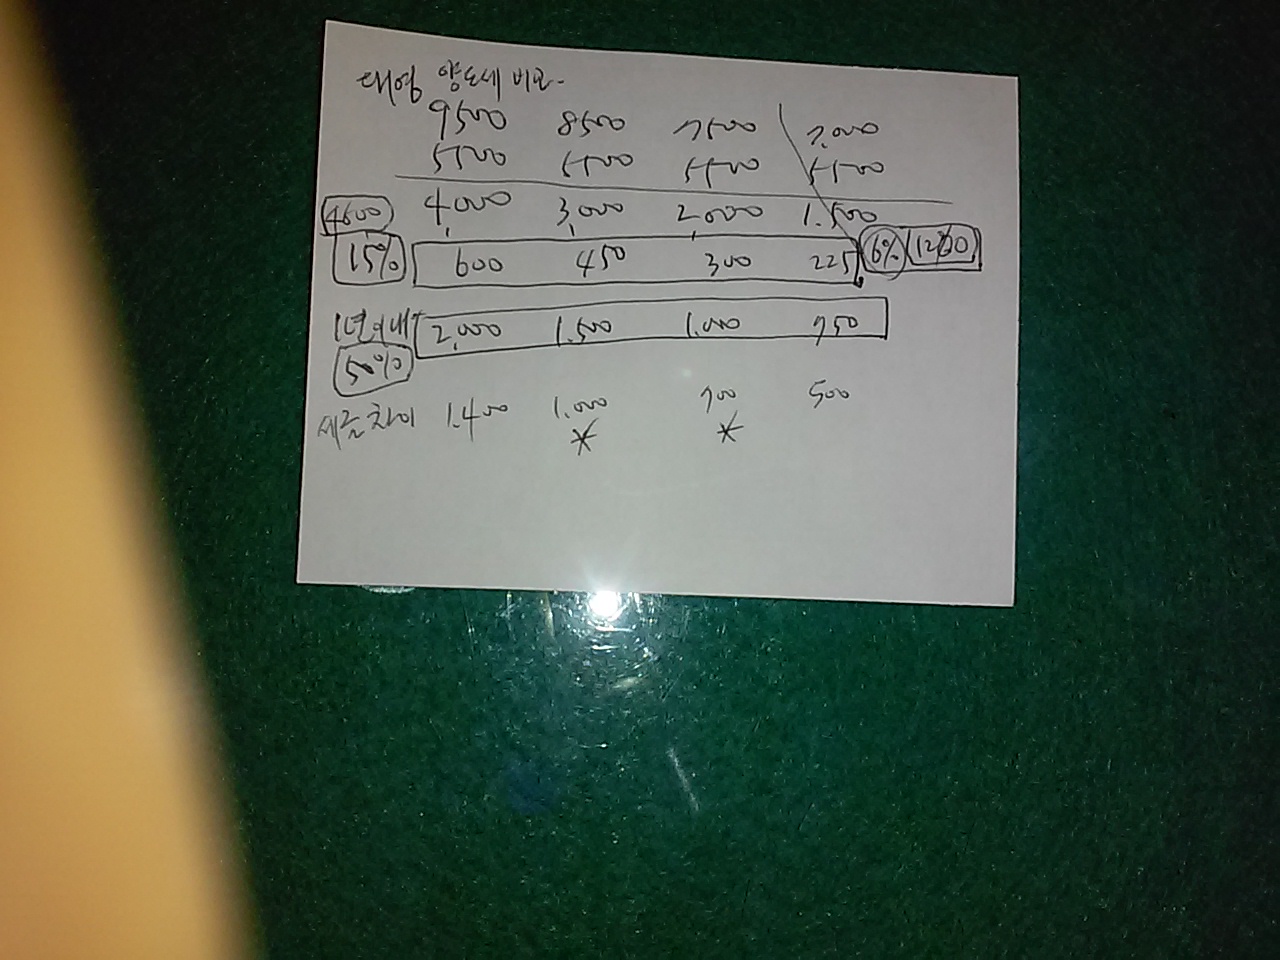 태영 양도세 비교-
9500 8500 7500 7.000
5500 5500 5500 5500
4600 4.000 3,000 2.000 1.500
15% 600 450 300 225 6% 1200
1년이내 2.000 1.500 1.000 750
50%
세율차이 1.400 1.000 700 500
* *